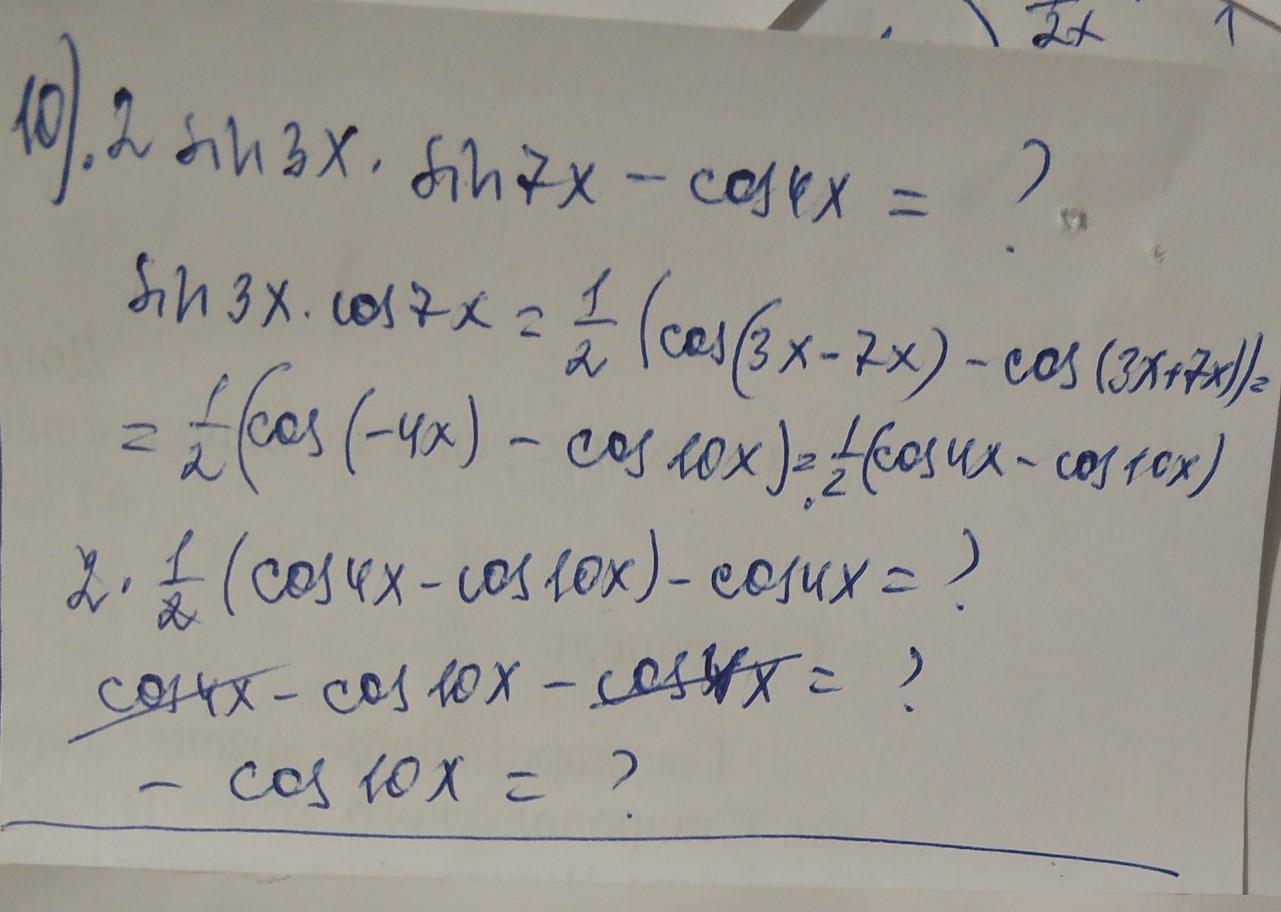 2x 1
10). 2 sin 3x · sin 7x - cos 4x = ?
sin 3x · cos 7x = 1/2 (cos(3x - 7x) - cos (3x+7x)) =
= 1/2 (cos (-4x) - cos 10x) = 1/2 (cos 4x - cos 10x)
2 · 1/2 (cos 4x - cos 10x) - cos 4x = ?
cos 4x - cos 10x - cos 4x = ?
- cos 10x = ?